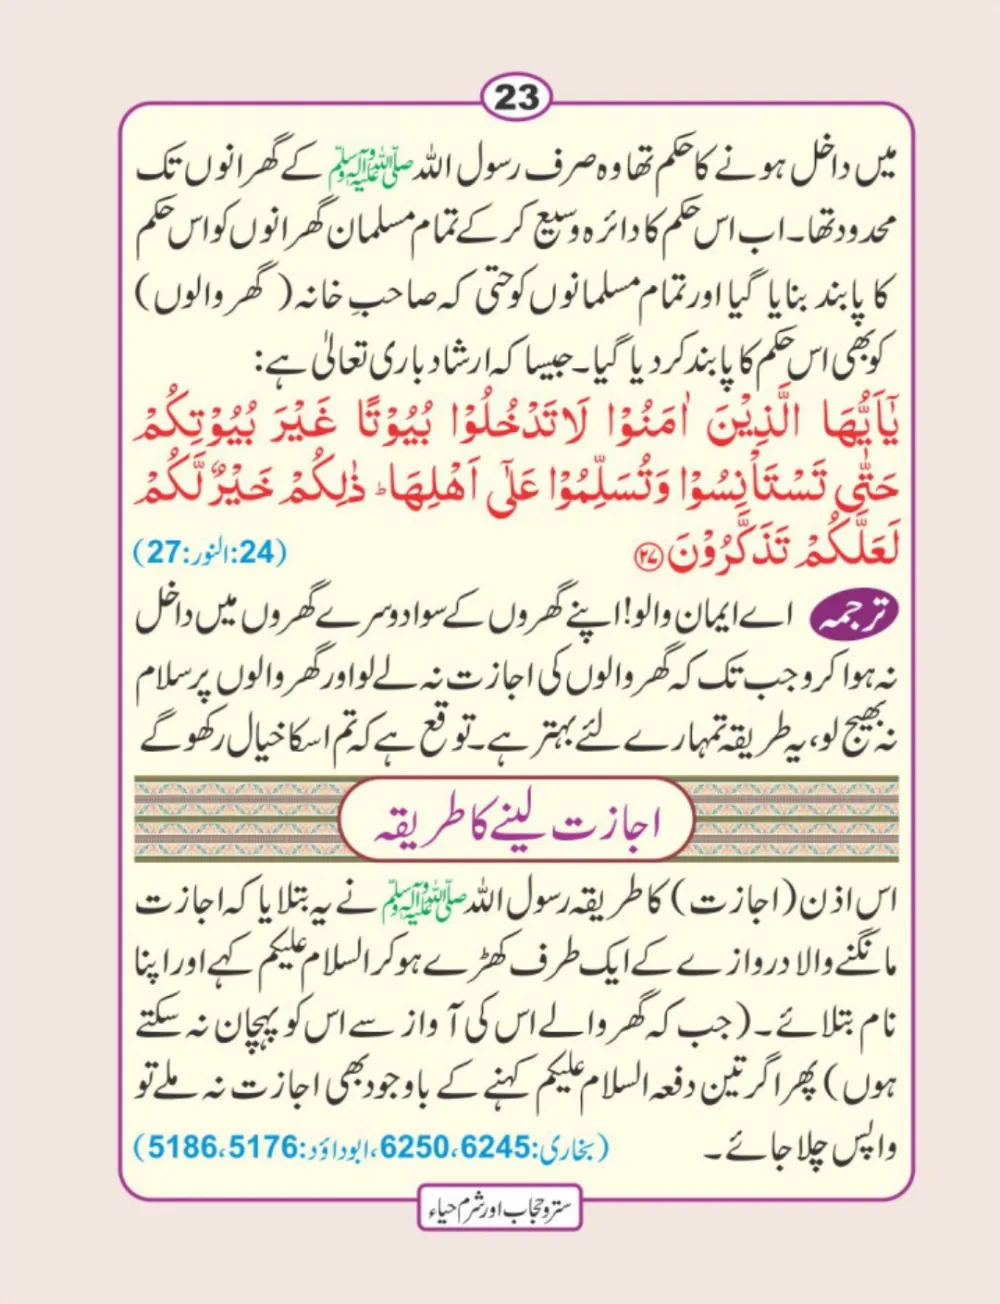 23
میں داخل ہونے کا حکم تھا وہ صرف رسول اللہ ﷺ کے گھرانوں تک
محدود تھا۔ اب اس حکم کا دائرہ وسیع کر کے تمام مسلمان گھرانوں کو اس حکم
کا پابند بنایا گیا اور تمام مسلمانوں کو حتی کہ صاحبِ خانہ (گھر والوں)
کو بھی اس حکم کا پابند کر دیا گیا۔ جیسا کہ ارشاد باری تعالیٰ ہے:
يٰٓاَيُّهَا الَّذِيْنَ اٰمَنُوْا لَا تَدْخُلُوْا بُيُوْتًا غَيْرَ بُيُوْتِكُمْ
حَتّٰى تَسْتَاْنِسُوْا وَتُسَلِّمُوْا عَلٰٓى اَهْلِهَا ؕ ذٰلِكُمْ خَيْرٌ لَّكُمْ
لَعَلَّكُمْ تَذَكَّرُوْنَ ﴿۲۷﴾ (24:النور:27)
ترجمہ اے ایمان والو! اپنے گھروں کے سوا دوسرے گھروں میں داخل
نہ ہوا کرو جب تک کہ گھر والوں کی اجازت نہ لے لو اور گھر والوں پر سلام
نہ بھیج لو، یہ طریقہ تمہارے لئے بہتر ہے۔ توقع ہے کہ تم اسکا خیال رکھو گے
اجازت لینے کا طریقہ
اس اذن (اجازت) کا طریقہ رسول اللہ ﷺ نے یہ بتلایا کہ اجازت
مانگنے والا دروازے کے ایک طرف کھڑے ہو کر السلام علیکم کہے اور اپنا
نام بتلائے۔ (جب کہ گھر والے اس کی آواز سے اس کو پہچان نہ سکتے
ہوں) پھر اگر تین دفعہ السلام علیکم کہنے کے باوجود بھی اجازت نہ ملے تو
واپس چلا جائے۔ (بخاری:6245،6250،ابوداؤد:5176،5186)
ستر و حجاب اور شرم حیاء